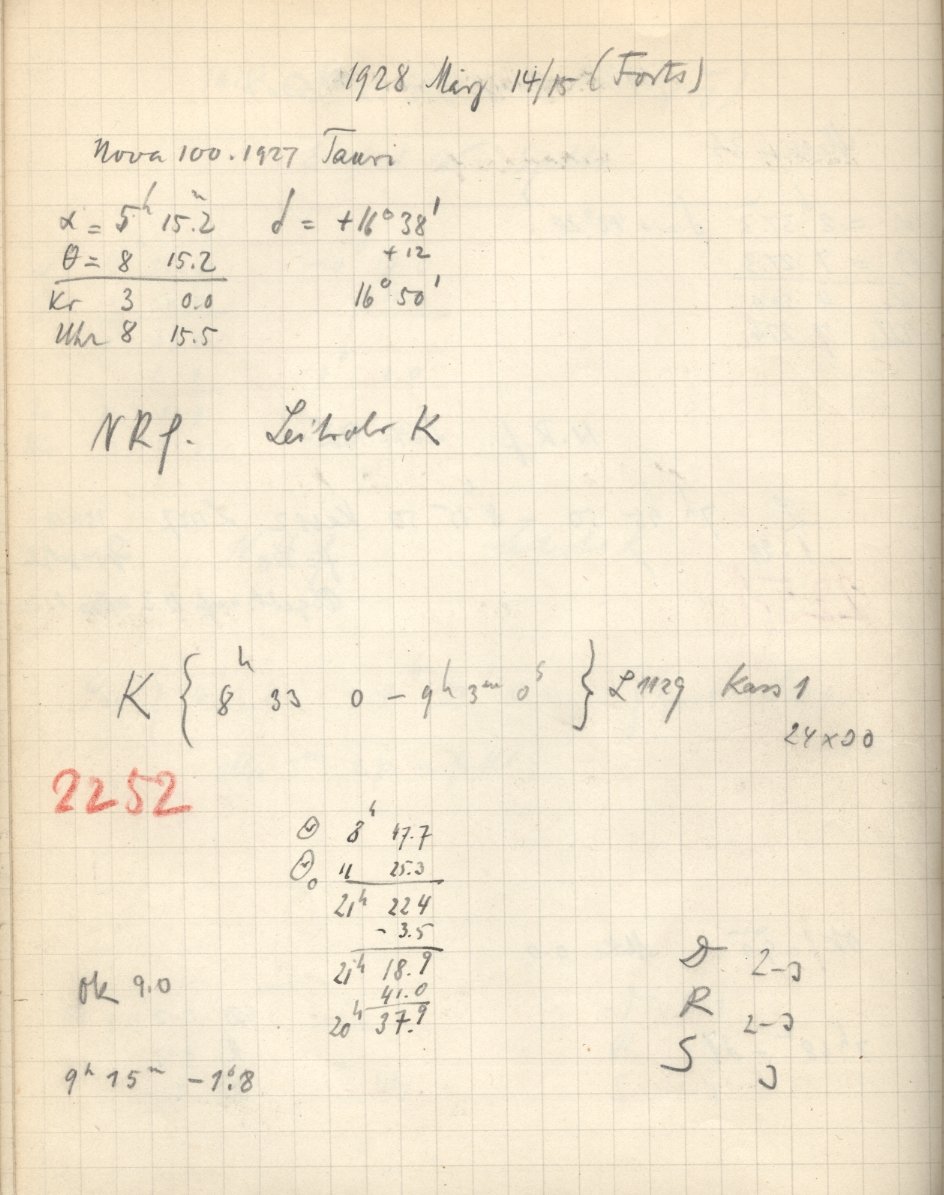 1928 März 14/15 (Forts)
Nova 100.1927 Tauri
α = 5h 15m.2 δ = +16° 38'
θ = 8 15.2 +12
Kr 3 0.0 16° 50'
Uhr 8 15.5
NRf. Leitrohr K
K { 8h 33 0 - 9h 3m 0s } L 1129 Kass 1
24×30
2252
θ 8h 47.7
θ₀ 11 25.3
21h 22.4
- 3.5
21h 18.9
41.0
20h 37.9
Ok 9.0
9h 15m -1°.8
D 2-3
R 2-3
S 3